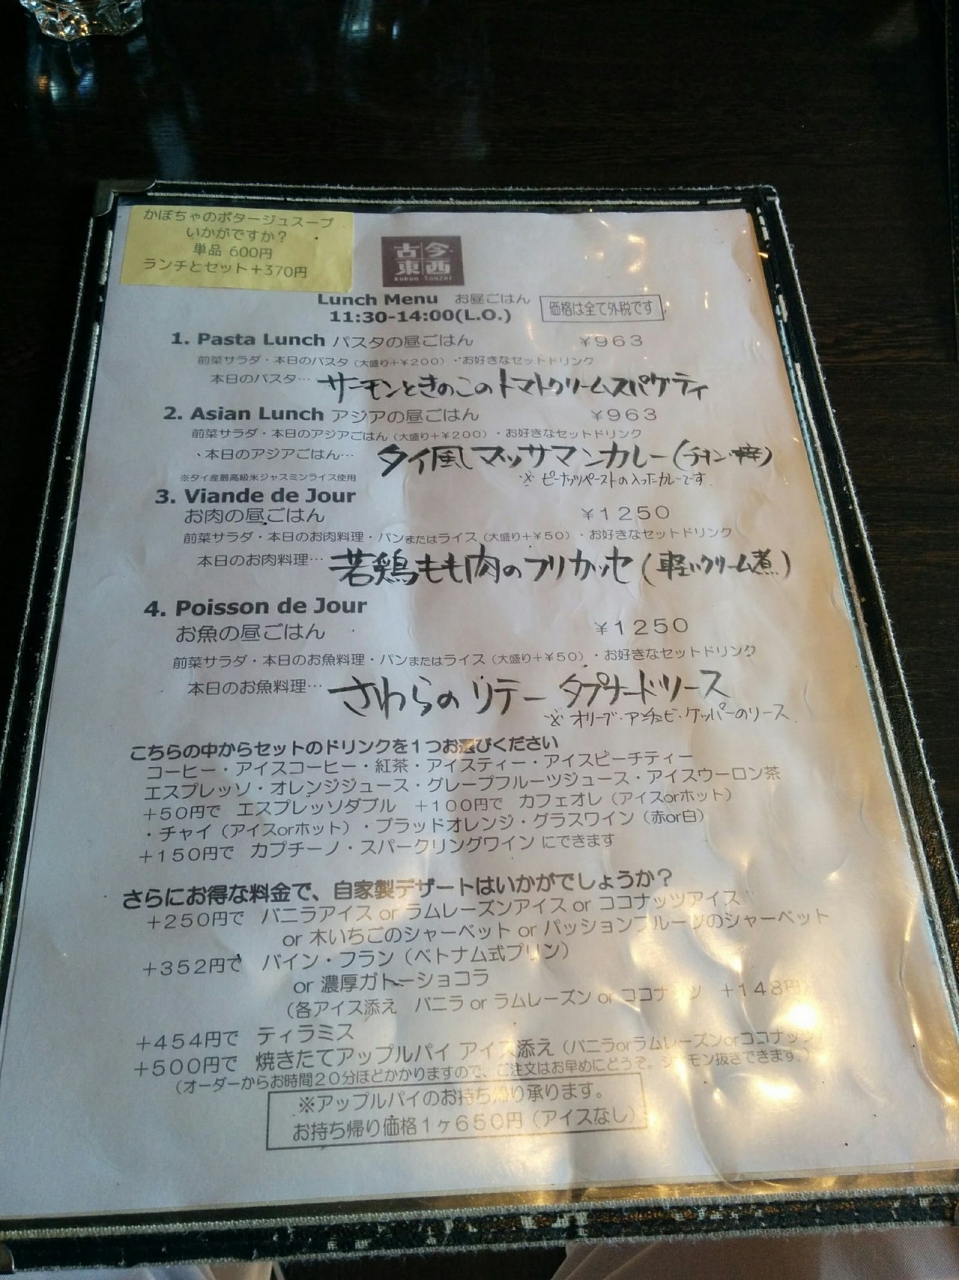 かぼちゃのポタージュスープ
いかがですか？
単品 600円
ランチとセット＋370円
古今
東西
kokon touzai
Lunch Menu お昼ごはん
価格は全て外税です
11:30-14:00(L.O.)
1. Pasta Lunch パスタの昼ごはん ￥963
前菜サラダ・本日のパスタ（大盛り＋￥200）・お好きなセットドリンク
本日のパスタ… サーモンときのこのトマトクリームスパゲティ
2. Asian Lunch アジアの昼ごはん ￥963
前菜サラダ・本日のアジアごはん（大盛り＋￥200）・お好きなセットドリンク
・本日のアジアごはん… タイ風マッサマンカレー（チキン・辛）
※ピーナッツペーストの入ったカレーです
※タイ産最高級米ジャスミンライス使用
3. Viande de Jour
お肉の昼ごはん ￥1250
前菜サラダ・本日のお肉料理・パンまたはライス（大盛り＋￥50）・お好きなセットドリンク
本日のお肉料理… 若鶏もも肉のフリカッセ（軽いクリーム煮）
4. Poisson de Jour
お魚の昼ごはん ￥1250
前菜サラダ・本日のお魚料理・パンまたはライス（大盛り＋￥50）・お好きなセットドリンク
本日のお魚料理… さわらのソテー タプナードソース
※オリーブ・アンチョビ・ケッパーのソース
こちらの中からセットのドリンクを１つお選びください
コーヒー・アイスコーヒー・紅茶・アイスティー・アイスピーチティー
エスプレッソ・オレンジジュース・グレープフルーツジュース・アイスウーロン茶
＋50円で エスプレッソダブル ＋100円で カフェオレ（アイスorホット）
・チャイ（アイスorホット）・ブラッドオレンジ・グラスワイン（赤or白）
＋150円で カプチーノ・スパークリングワイン にできます
さらにお得な料金で、自家製デザートはいかがでしょうか？
＋250円で バニラアイス or ラムレーズンアイス or ココナッツアイス
or 木いちごのシャーベット or パッションフルーツのシャーベット
＋352円で バイン・フラン（ベトナム式プリン）
or 濃厚ガトーショコラ
（各アイス添え バニラ or ラムレーズン or ココナッツ ＋148円）
＋454円で ティラミス
＋500円で 焼きたてアップルパイ アイス添え（バニラorラムレーズンorココナッツ）
（オーダーからお時間２０分ほどかかりますので、ご注文はお早めにどうぞ。シナモン抜きできます。）
※アップルパイのお持ち帰り承ります。
お持ち帰り価格１ヶ650円（アイスなし）